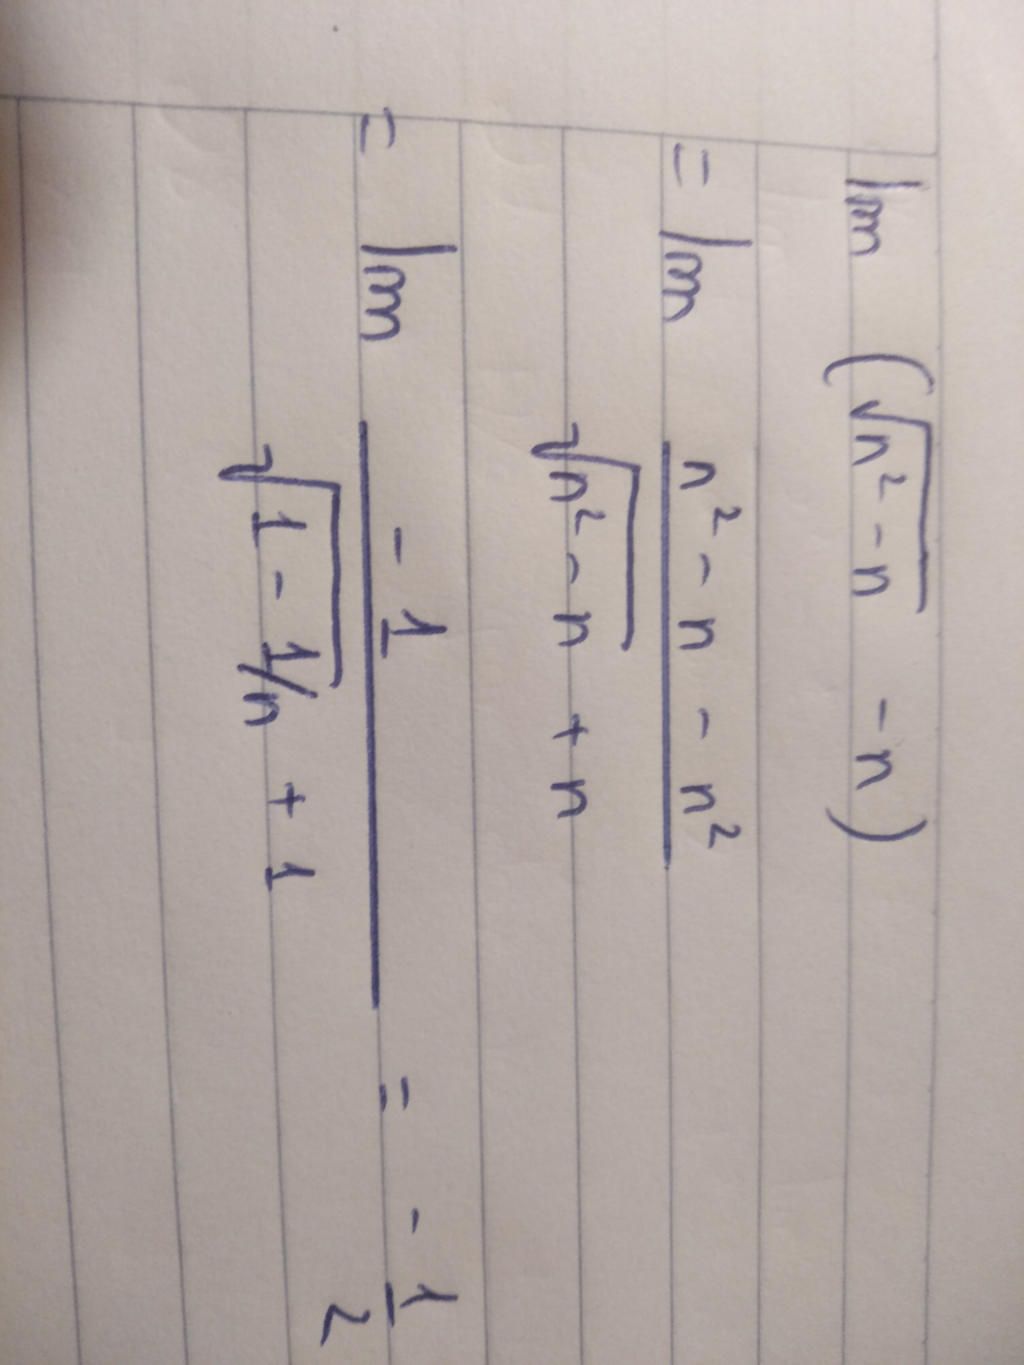 lim (√(n² - n) - n)
= lim (n² - n - n²) / (√(n² - n) + n)
= lim (-1) / (√(1 - 1/n) + 1) = -1/2